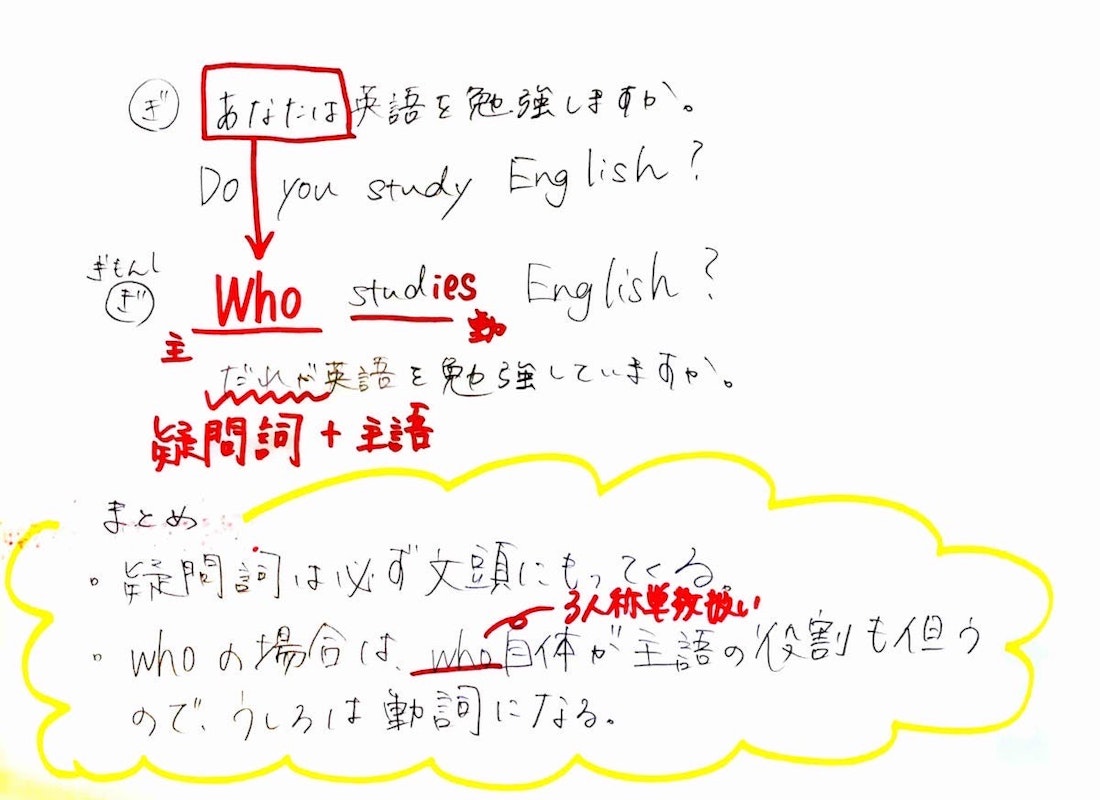 ぎ あなたは英語を勉強しますか。
Do you study English?
ぎもんし
ぎ Who studies English?
主 動
だれが英語を勉強していますか。
疑問詞+主語
まとめ
・疑問詞は必ず文頭にもってくる。
3人称単数扱い
・whoの場合は、who自体が主語の役割も担う
ので、うしろは動詞になる。